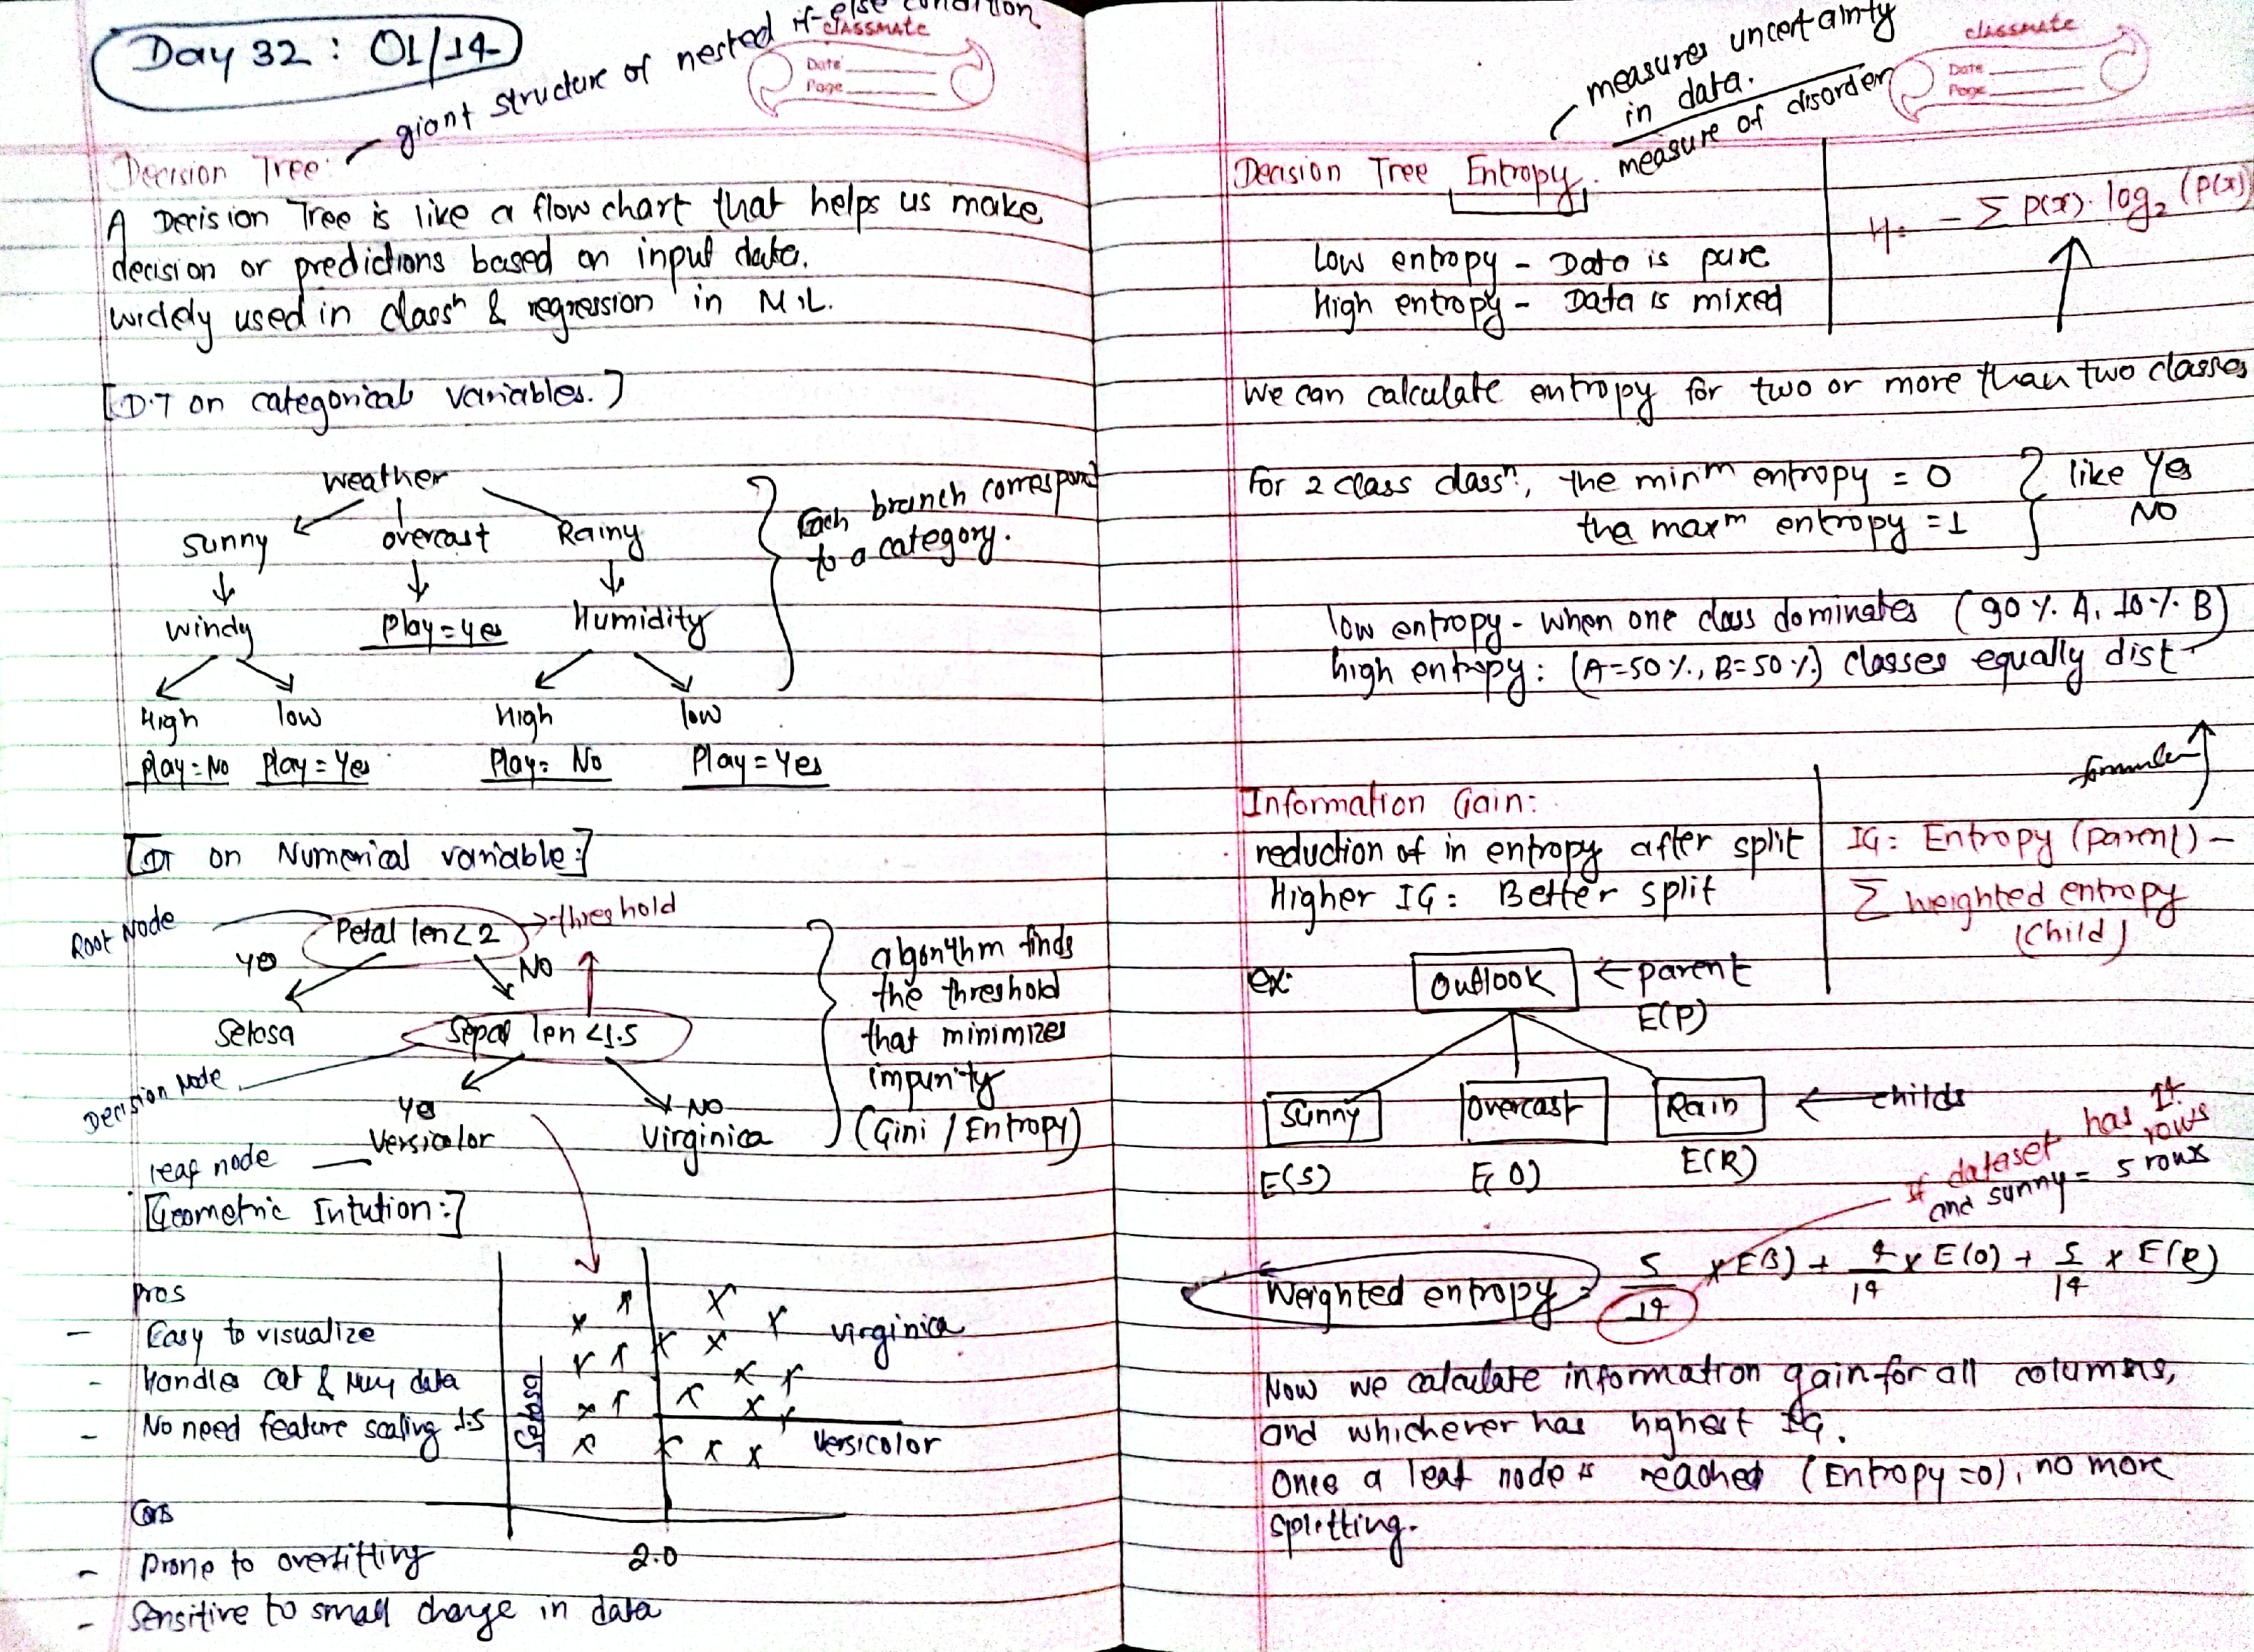 Day 32 : 01/14
giant structure of nested if-else condition
classmate
Date
Page
Decision Tree:
A Decision Tree is like a flow chart that helps us make
decision or predictions based on input data.
widely used in classn & regression in M.L.
[D.T on categorical variables.]
weather
sunny overcast Rainy
windy Play=yes Humidity
High low High low
Play=No Play=Yes Play= No Play=Yes
Each branch correspond
to a category.
[DT on Numerical variable:]
Root Node
Petal len<2
threshold
yes
NO
Setosa
Sepal len <1.5
Decision Node
yes
NO
Versicolor
Virginica
leaf node
algorithm finds
the threshold
that minimizes
impurity
(Gini / Entropy)
[Geometric Intution:]
Pros
- Easy to visualize
- Handles cat & Num data
- No need feature scaling
1.5
Setosa
virginica
versicolor
2.0
Cons
- Prone to overfitting
- Sensitive to small change in data
classmate
Date
Page
measures uncertainty
in data.
measure of disorder
Decision Tree Entropy.
H= - Σ P(x). log₂ (P(x))
Low entropy - Data is pure
High entropy - Data is mixed
We can calculate entropy for two or more than two classes
For 2 class classn, the minm entropy = 0
the maxm entropy = 1
like Yes
NO
low entropy - when one class dominates (90%. A, 10%. B)
high entropy: (A=50%., B=50%.) classes equally dist
formula
Information Gain:
reduction of in entropy after split
Higher IG: Better split
IG: Entropy (parent) -
Σ weighted entropy
(child)
ex:
Outlook ← parent
E(P)
Sunny Overcast Rain ← childs
E(S) E(O) E(R)
If dataset has 14 rows
and sunny = 5 rows
Weighted entropy = 5/14 x E(S) + 4/14 x E(O) + 5/14 x E(R)
Now we calculate information gain for all columns,
and whichever has highest IG.
Once a leaf node is reached (Entropy=0), no more
splitting.